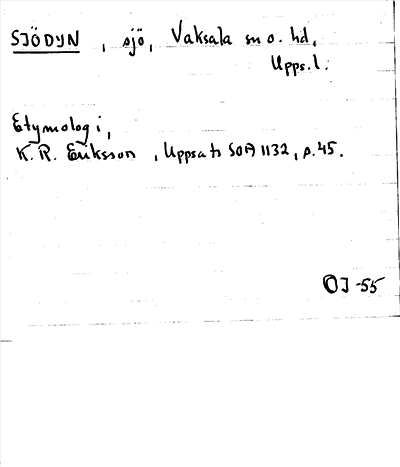 SJÖDYN, sjö, Vaksala sn o. hd,
Upps.l.
Etymologi,
K. R. Eriksson, Uppsats SOA 1132, s. 45.
OJ -55